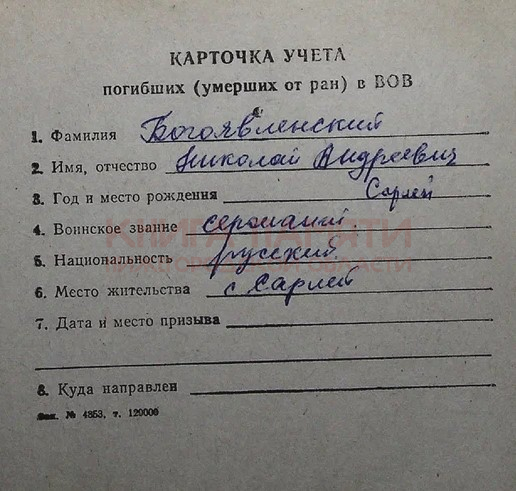 КАРТОЧКА УЧЕТА
погибших (умерших от ран) в ВОВ
1. Фамилия Богоявленский
2. Имя, отчество Николай Андреевич
3. Год и место рождения Сарлей
4. Воинское звание сержант
КНИГА ПАМЯТИ
5. Национальность русский
НИЖЕГОРОДСКОЙ ОБЛАСТИ
6. Место жительства с Сарлей
7. Дата и место призыва
8. Куда направлен
Зак. № 4853, т. 120000